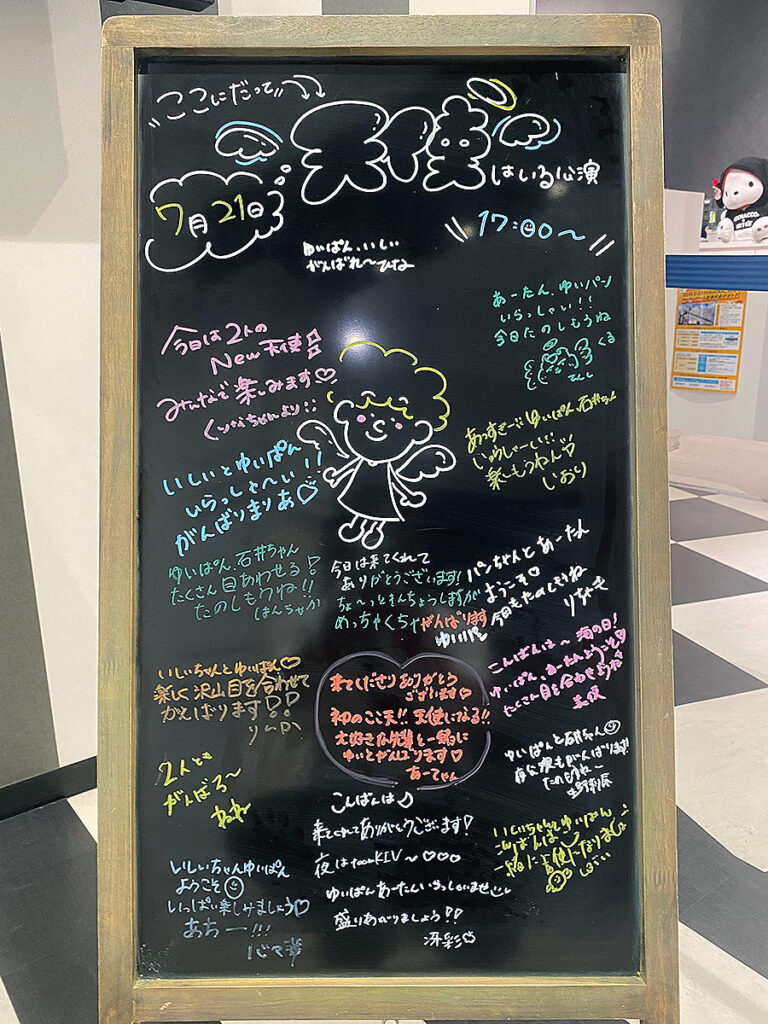 ここにだって
天使
はいる公演
7月21日
17:00〜
ゆいぱん、いしい
がんばれ〜ひな
あーたん、ゆいパン
いらっしゃい!!
今日たのしもうね
くる
てんし
今日は2人の
New天使
みんなで楽しみます♡
くれなちゃんより
あっすきー ゆいぱん、石井ちゃん
いらっしゃーい!!
楽しもうねん♡
いおり
いしいとゆいぱん
いらっしゃ〜い!!
がんばりまりあ♡
ゆいぱん、石井ちゃん
たくさん目あわせる!
たのしもうね!!
はんちゃか
今日は来てくれて
ありがとうございます!
ちょ〜っときんちょうしますが
めっちゃくちゃがんばります
ゆいパン
パンちゃんとあーたん
ようこそ♡
今日もたのしもうね
りなも
こんばんは〜 海の日!
ゆいぱん、あーたんようこそ♡
たくさん目を合わせようね
美優
いしいちゃんとゆいぱん♡
楽しく沢山目を合わせて
がんばります!!
来てくださりありがとう
ございます♡
初のここ天!! 天使になる!!
大好きな先輩と一緒に
ゆいとがんばります♡
あーてゃん
ゆいぱんと石井ちゃん
夜公演もがんばります!!
たのもうね〜
生野莉奈
2人とも
がんばろ〜
ねね
こんばんは♪
来てくれてありがとうございます!
夜はteamKIV〜♡♡♡
ゆいぱんあーたんいらっしゃいませ
盛りあがりましょう!!
冴彩
いしいちゃんとゆいぱん
こんばんは
一緒に天使になりましょ
いしいちゃんゆいぱん
ようこそ
いっぱい楽しみましょう♡
あちー!!!